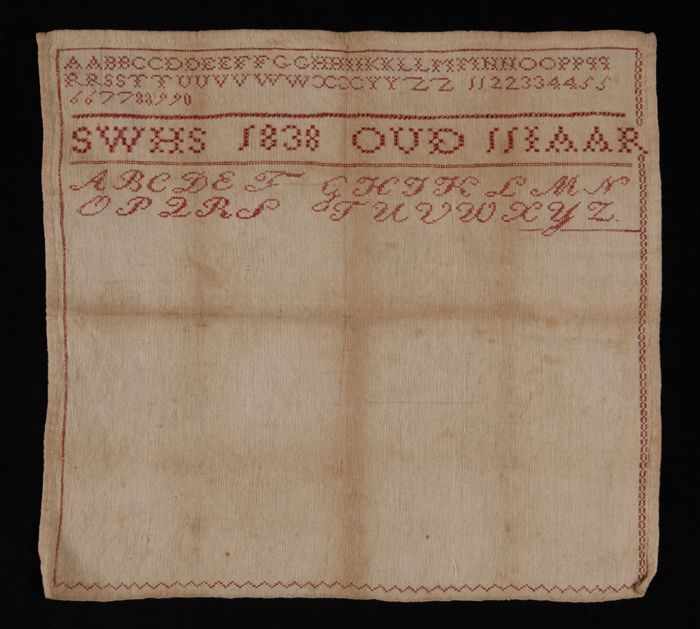 AABBCCDDEEFFGGHHIIKKLLMMNNOOPPQQ
RRSSTTUUVVWWXXYYZZ 1122334455
6677889990
SWHS 1838 OUD 11 IAAR
ABCDEF GHIKLMN
OPQRS TUVWXYZ.